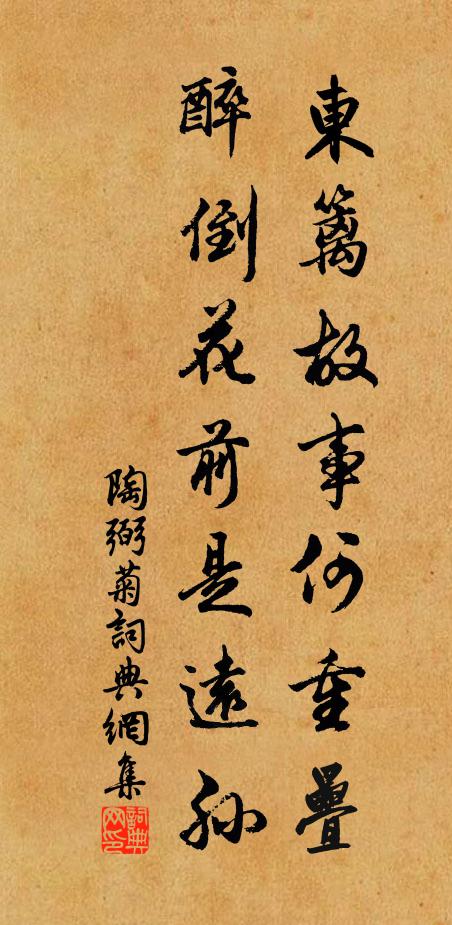 東籬故事何重疊
醉倒花前是遠孫
陶弼菊詞典網集
詞典網印